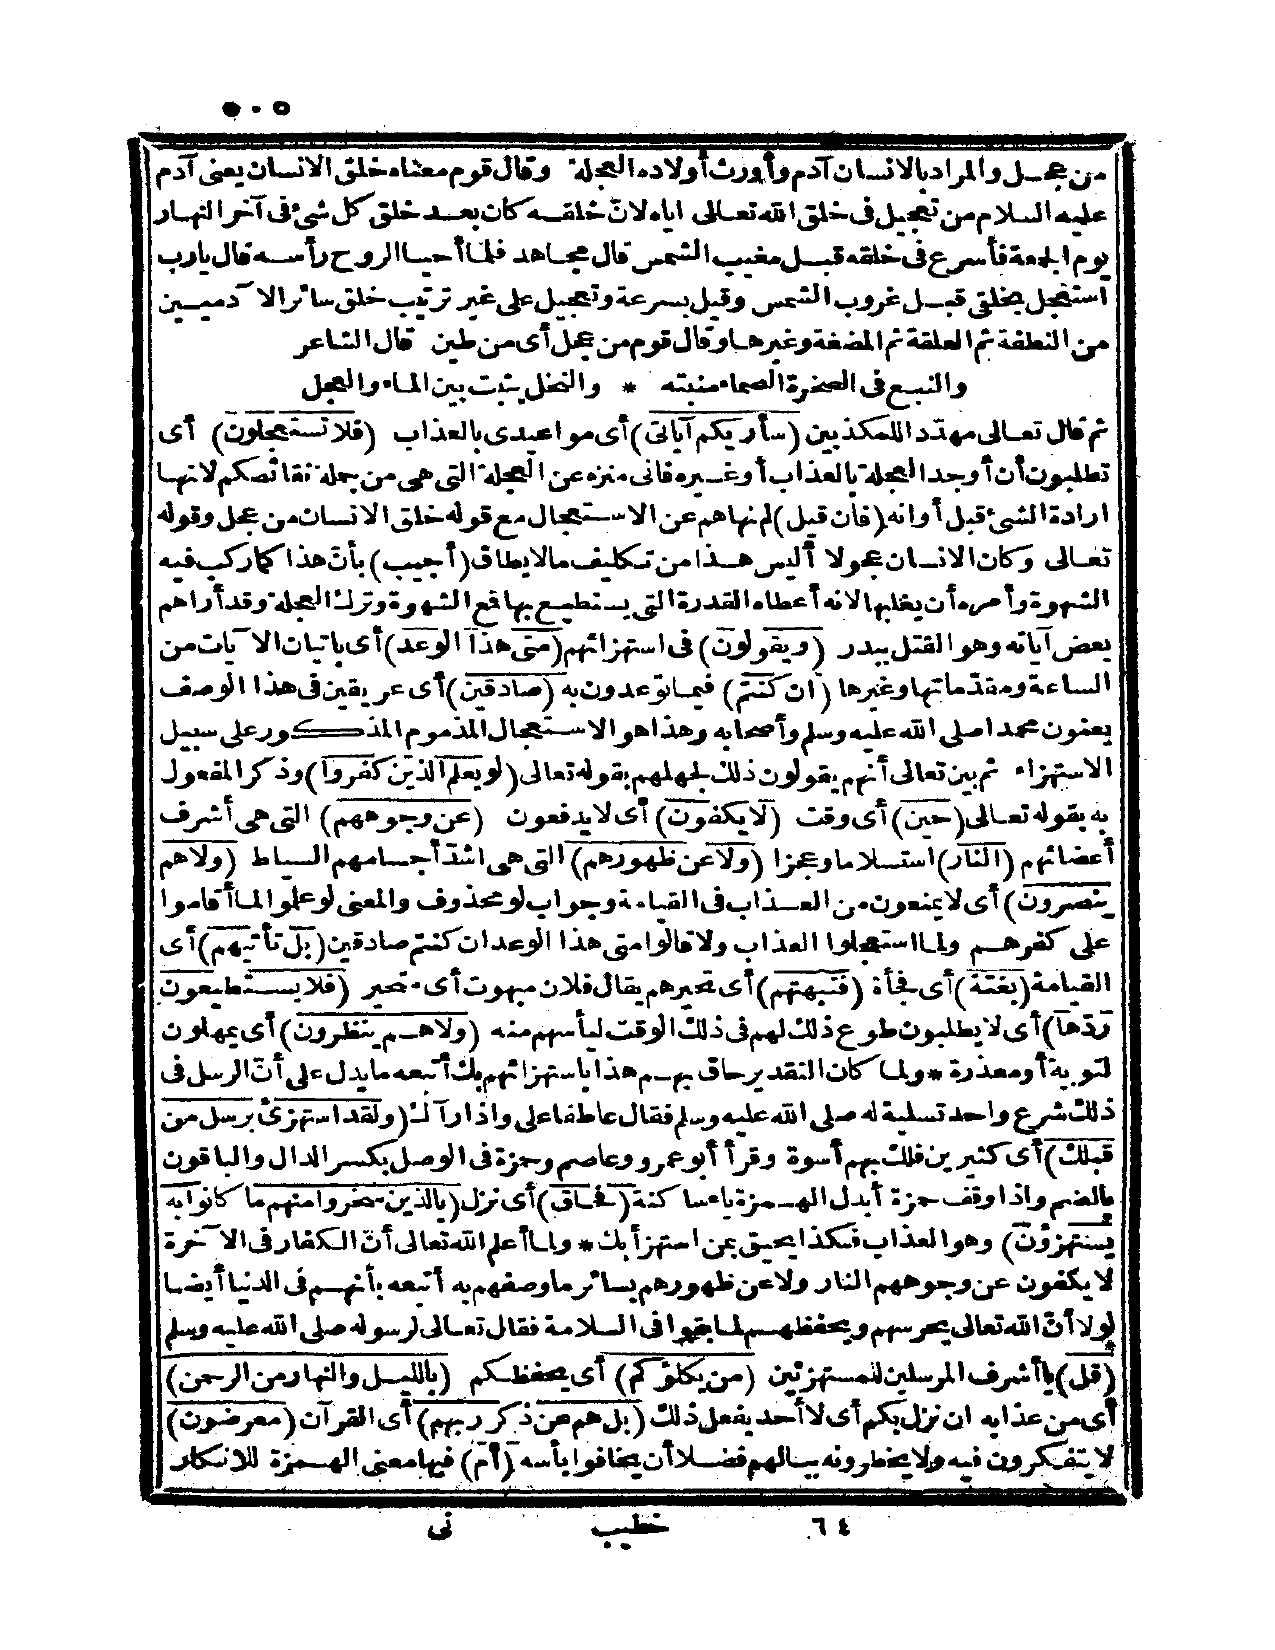 ٥٠٥
من عجل والمراد بالانسان آدم وأورث أولاده العجلة وقال قوم معناه خلق الانسان يعنى آدم
عليه السلام من تعجيل فى خلق الله تعالى اياه لانّ خلقه كان بعد خلق كل شئ فى آخر النهار
يوم الجمعة فأسرع فى خلقه قبل مغيب الشمس قال مجاهد فلما أحيا الروح رأسه قال يارب
استعجل بخلقى قبل غروب الشمس وقيل بسرعة وتعجيل على غير ترتيب خلق سائر الا دميين
من النطفة ثم العلقة ثم المضغة وغيرها وقال قوم من عجل أى من طين قال الشاعر
والنبع فى الصخرة الصماء منبته * والنخل ينبت بين الماء والعجل
ثم قال تعالى مهدّد اللمكذبين (سأريكم آياتى) أى مواعيدى بالعذاب (فلا تستعجلون) أى
تطلبون أن أوجد العجلة بالعذاب أوغيره فانى منزه عن العجلة التى هى من جملة نقائصكم لانها
ارادة الشئ قبل أوانه (فان قيل) لم نهاهم عن الاستعجال مع قوله خلق الانسان من عجل وقوله
تعالى وكان الانسان عجولا أليس هذا من تكليف مالا يطاق (أجيب) بأنّ هذا كما ركب فيه
الشهوة وأمره أن يغلبها لانه أعطاه القدرة التى يستطيع بها قمع الشهوة وترك العجلة وقد أراهم
بعض آياته وهو القتل ببدر (ويقولون) فى استهزائهم (متى هذا الوعد) أى باتيان الا يات من
الساعة ومقدّماتها وغيرها (ان كنتم) فيما توعدون به (صادقين) أى عريقين فى هذا الوصف
يعنون محمدا صلى الله عليه وسلم وأصحابه وهذا هو الاستعجال المذموم المذكور على سبيل
الاستهزاء ثم بين تعالى أنهم يقولون ذلك لجهلهم بقوله تعالى (لو يعلم الذين كفروا) وذكر المفعول
به بقوله تعالى (حين) أى وقت (لا يكفون) أى لا يدفعون (عن وجوههم) التى هى أشرف
أعضائهم (النار) استسلاما وعجزا (ولا عن ظهورهم) التى هى اشدّ أجسامهم السياط (ولاهم
ينصرون) أى لا يمنعون من العذاب فى القيامة وجواب لو محذوف والمعنى لو علموا لما أقاموا
على كفرهم ولما استعجلوا العذاب ولا قالوا متى هذا الوعد ان كنتم صادقين (بل تأتيهم) أى
القيامة (بغتة) أى فجأة (فتبهتهم) أى تحيرهم يقال فلان مبهوت أى متحير (فلا يستطيعون
ردّها) أى لا يطلبون طوع ذلك لهم فى ذلك الوقت ليأسهم منه (ولاهم ينظرون) أى يمهلون
لتوبة أو معذرة * ولما كان التقدير حاق بهم هذا باستهزائهم بك أتبعه ما يدل على أنّ الرسل فى
ذلك شرع واحد تسلية له صلى الله عليه وسلم فقال عاطفا على واذا رآك (ولقد استهزئ برسل من
قبلك) أى كثيرين فلك بهم أسوة وقرأ أبوعمرو وعاصم وحمزة فى الوصل بكسر الدال والباقون
بالضم واذا وقف حمزة أبدل الهمزة ياء ساكنة (فحاق) أى نزل (بالذين سخروا منهم ما كانوا به
يستهزؤن) وهو العذاب فكذا يحيق بمن استهزأ بك * ولما أعلم الله تعالى أنّ الكفار فى الا خرة
لا يكفون عن وجوههم النار ولا عن ظهورهم بسائر ما وصفهم به أتبعه بأنهم فى الدنيا أيضا
لولا أنّ الله تعالى يحرسهم ويحفظهم لما بقوا فى السلامة فقال تعالى لرسوله صلى الله عليه وسلم
(قل) يا أشرف المرسلين للمستهزئين (من يكلؤكم) أى يحفظكم (بالليل والنهار من الرحمن)
أى من عذابه ان نزل بكم أى لا أحد يفعل ذلك (بل هم عن ذكر ربهم) أى القرآن (معرضون)
لا يتفكرون فيه ولا يخطرونه ببالهم فضلا أن يخافوا بأسه (أم) فيها معنى الهمزة للانكار
٦٤ خطيب نى